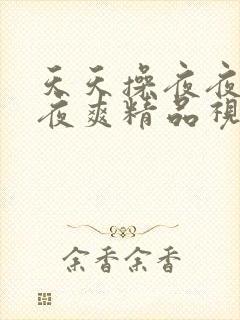 天天操夜夜
夜爽精品視
余香余香